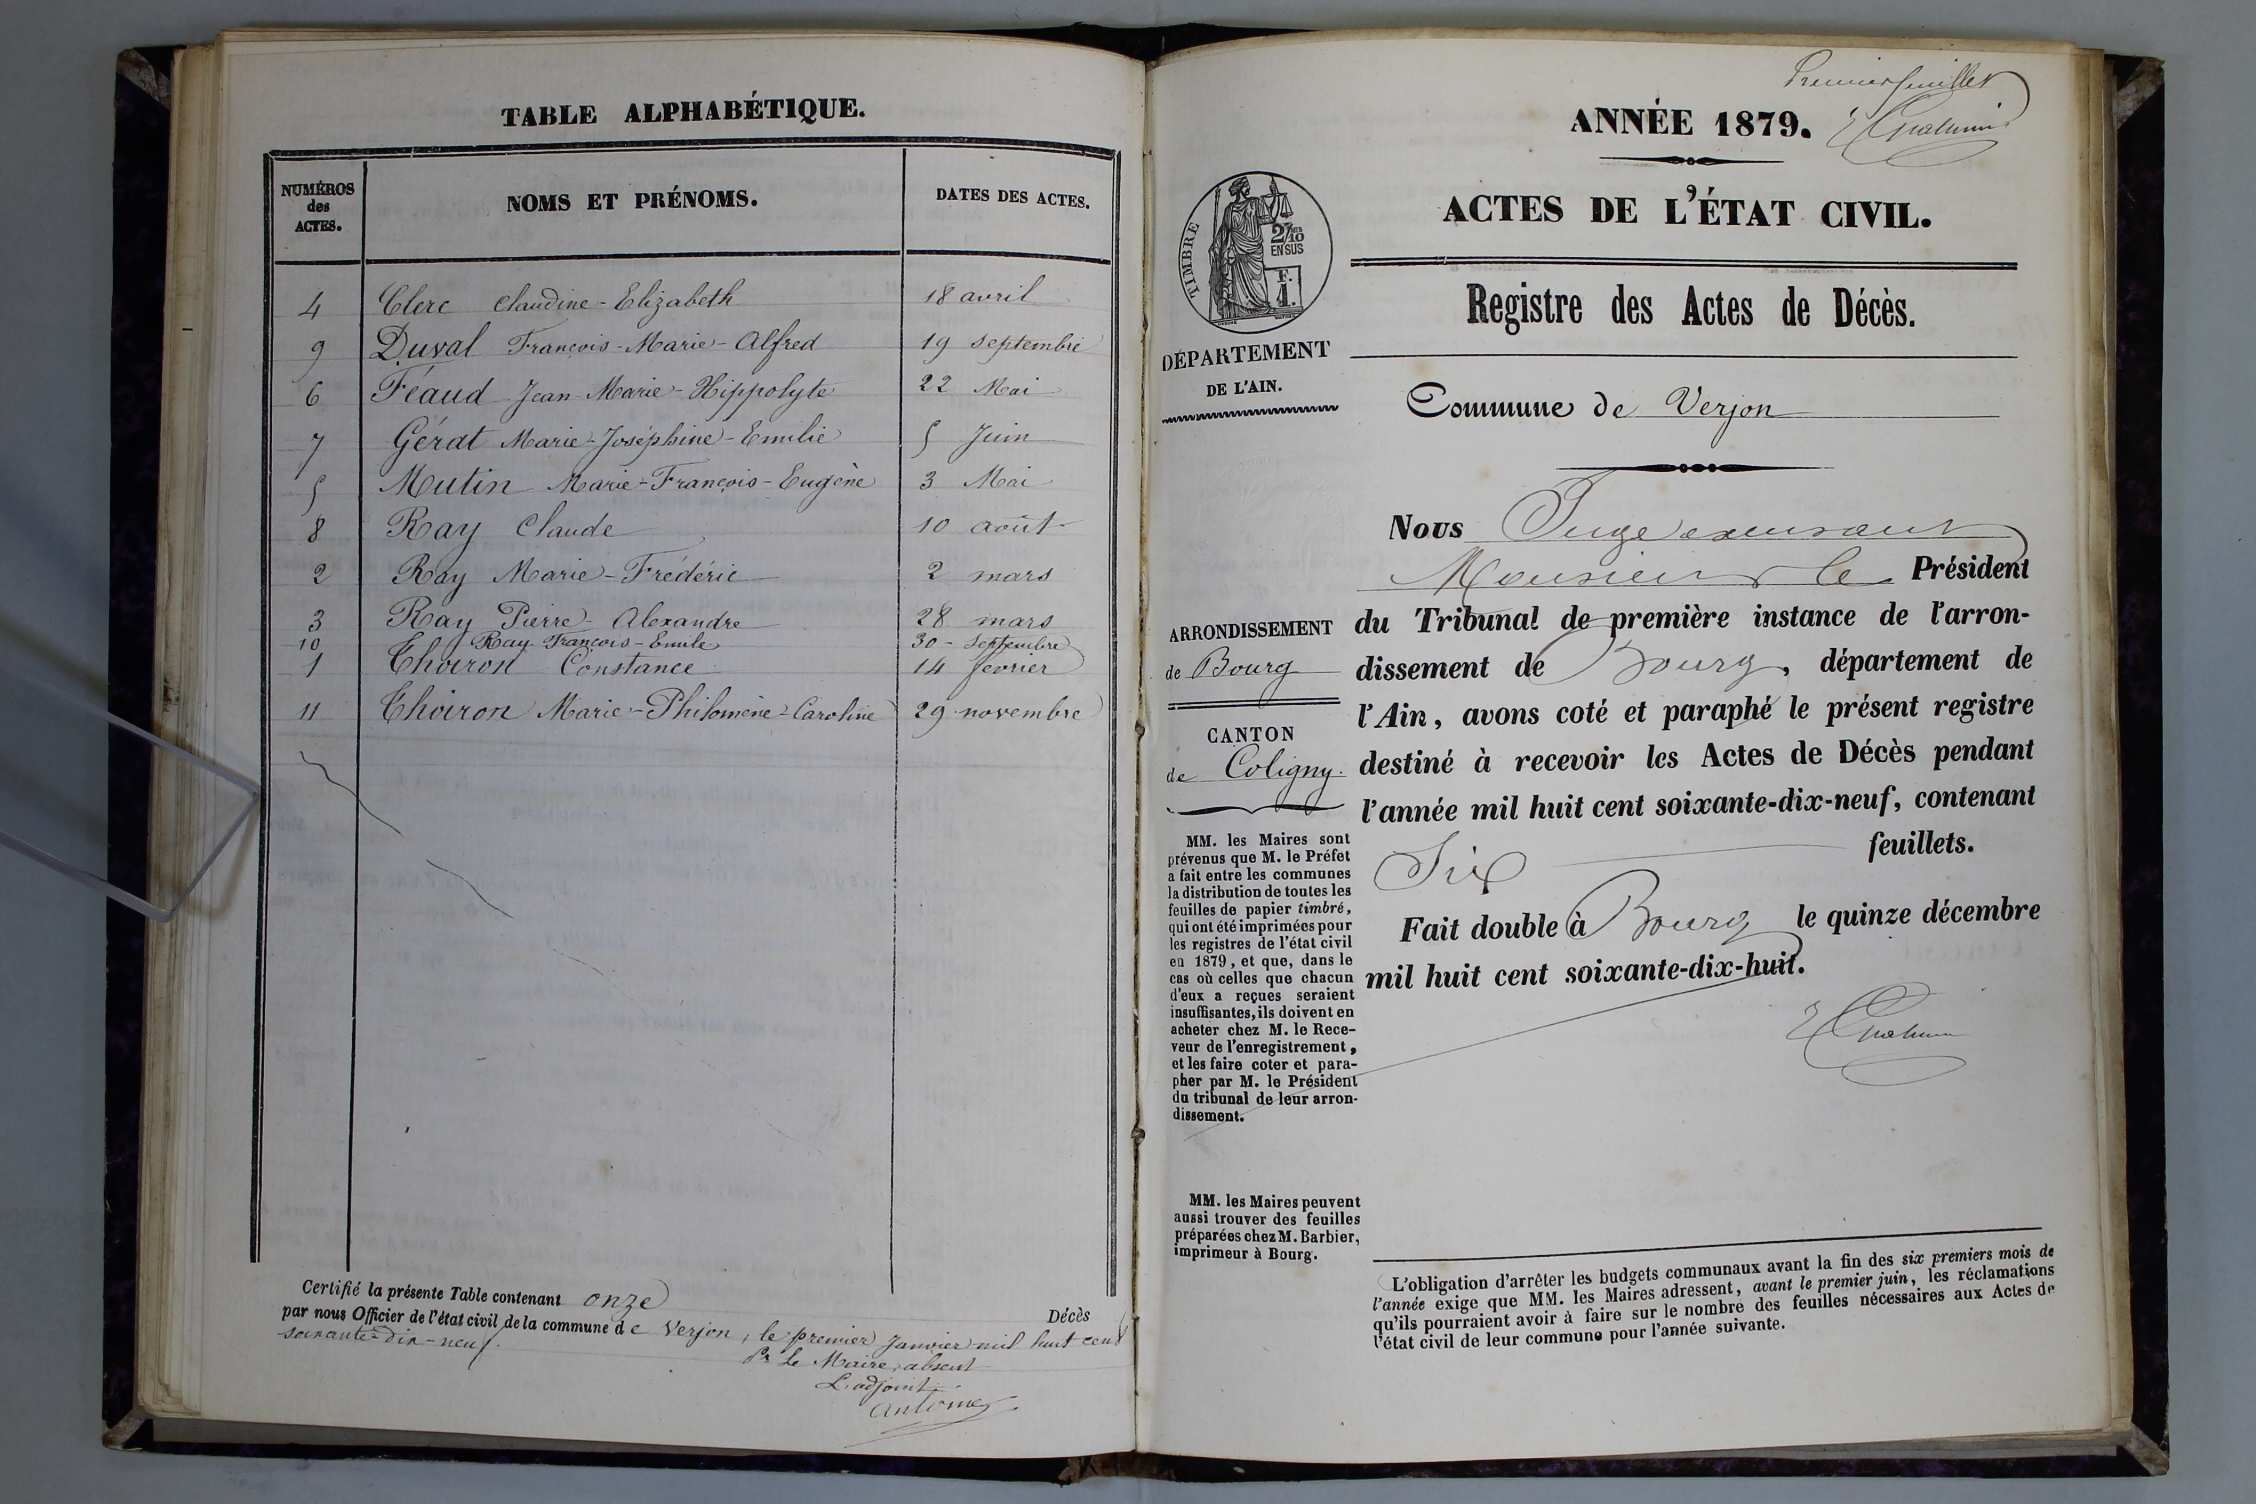 TABLE ALPHABÉTIQUE.
NUMÉROS des ACTES.
NOMS ET PRÉNOMS.
DATES DES ACTES.
4 Clerc Claudine-Elizabeth 18 avril
9 Duval François-Marie-Alfred 19 septembre
6 Féaud Jean-Marie-Hippolyte 22 Mai
7 Gérat Marie-Joséphine-Emilie 5 Juin
5 Mutin Marie-François-Eugène 3 Mai
8 Ray Claude 10 août
2 Ray Marie-Frédéric 2 mars
3 Ray Pierre-Alexandre 28 mars
10 Ray François-Emile 30 - septembre
1 Thoiron Constance 14 fevrier
11 Thoiron Marie-Philomène-Caroline 29 novembre
Certifié la présente Table contenant onze Décès
par nous Officier de l'état civil de la commune de Verjon, le premier Janvier mil huit cent
soixante-dix-neuf.
Pr Le Maire absent
L'adjoint
Antoine
Premier feuillet
ANNÉE 1879.
ACTES DE L'ÉTAT CIVIL.
TIMBRE
2/10 EN SUS
F. 1.
Registre des Actes de Décès.
DÉPARTEMENT
DE L'AIN.
Commune de Verjon
Nous Juge excusant
Monsieur le Président
du Tribunal de première instance de l'arron-
dissement de Bourg, département de
l'Ain, avons coté et paraphé le présent registre
destiné à recevoir les Actes de Décès pendant
l'année mil huit cent soixante-dix-neuf, contenant
Six feuillets.
Fait double à Bourg le quinze décembre
mil huit cent soixante-dix-huit.
ARRONDISSEMENT
de Bourg
CANTON
de Coligny.
MM. les Maires sont
prévenus que M. le Préfet
a fait entre les communes
la distribution de toutes les
feuilles de papier timbré,
qui ont été imprimées pour
les registres de l'état civil
en 1879, et que, dans le
cas où celles que chacun
d'eux a reçues seraient
insuffisantes, ils doivent en
acheter chez M. le Rece-
veur de l'enregistrement,
et les faire coter et para-
pher par M. le Président
du tribunal de leur arron-
dissement.
MM. les Maires peuvent
aussi trouver des feuilles
préparées chez M. Barbier,
imprimeur à Bourg.
L'obligation d'arrêter les budgets communaux avant la fin des six premiers mois de
l'année exige que MM. les Maires adressent, avant le premier juin, les réclamations
qu'ils pourraient avoir à faire sur le nombre des feuilles nécessaires aux Actes de
l'état civil de leur commune pour l'année suivante.